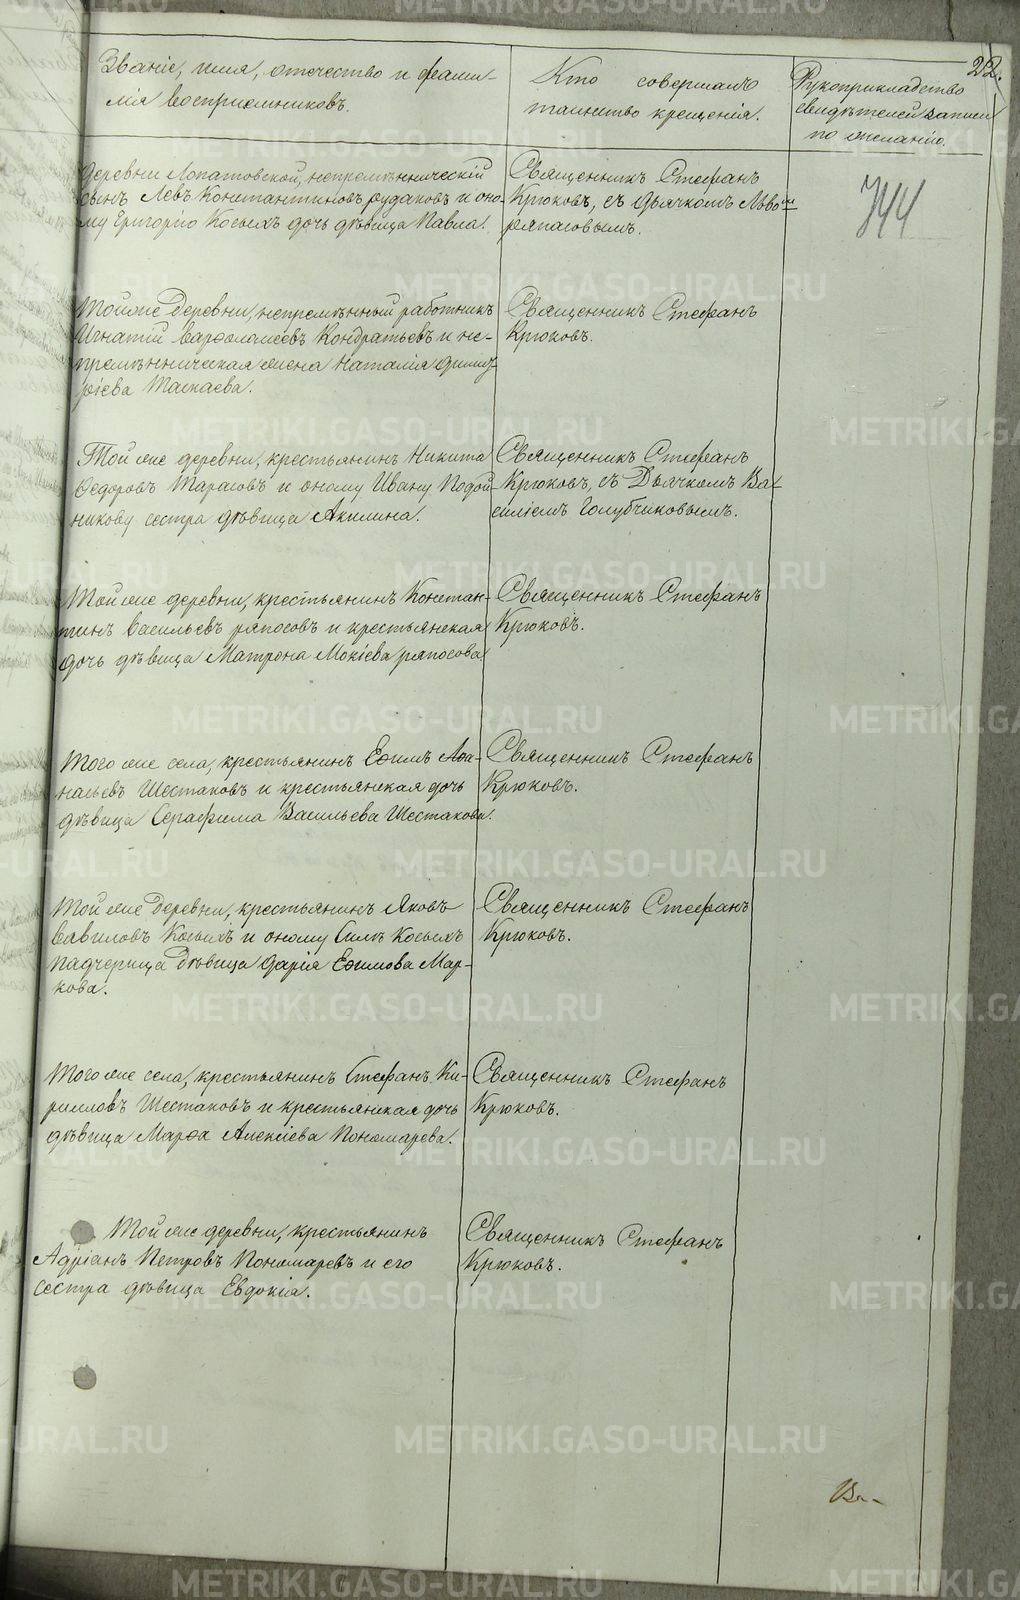 22.
Званіе, имя, отчество и фами-
лія воспріемниковъ.
Кто совершалъ
таинство крещенія.
Рукоприкладство
свидѣтелей записи
по желанію.
744
Деревни Лопатовской, непремѣнническій
сынъ Левъ Константиновъ Рудаковъ и оно-
му Григорію Косыхъ дочь дѣвица Павла.
Священникъ Стефанъ
Крюковъ, съ Дьячкомъ Львомъ
Тойже Деревни, непремѣнный работникъ
Игнатій Варѳоломеевъ Кондратьевъ и не-
премѣнническая жена Наталія
Таскаева.
Священникъ Стефанъ
Крюковъ.
Той же деревни, крестьянинъ Никита
Ѳедоровъ Тарасовъ и оному Ивану Подой-
никову сестра дѣвица Акилина.
Священникъ Стефанъ
Крюковъ, съ Дьячкомъ Ва-
силіемъ Голубчиковымъ.
Той же деревни, крестьянинъ Констан-
тинъ Васильевъ Ряпосовъ и крестьянская
дочь дѣвица Матрона Мокіева Ряпосова
Священникъ Стефанъ
Крюковъ.
Того же села, крестьянинъ Ефимъ Аѳа-
насьевъ Шестаковъ и крестьянская дочь
дѣвица Серафима Васильева Шестакова.
Священникъ Стефанъ
Крюковъ.
Той же Деревни, крестьянинъ Яковъ
Вавиловъ Косыхъ и оному Силѣ Косыхъ
падчерица Дѣвица Дарія Ефимова Мар-
кова.
Священникъ Стефанъ
Крюковъ.
Того же села, крестьянинъ Стефанъ Ки-
рилловъ Шестаковъ и крестьянская дочь
дѣвица Марѳа Алексіева Пономарева.
Священникъ Стефанъ
Крюковъ.
Той же деревни, крестьянинъ
Адріанъ Петровъ Пономаревъ и его
сестра дѣвица Евдокія.
Священникъ Стефанъ
Крюковъ.
METRIKI.GASO-URAL.RU